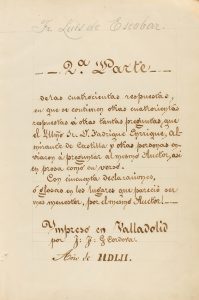 Fr. Luis de Escobar.
2.ª Parte
de las cuatrocientas respuestas,
en que se contienen otras cuatrocientas
respuestas á otras tantas preguntas, que
el Ylltño Sr. D. Fadrique Enrriquez, Al-
mirante de Castilla y otras personas en-
viaron á preguntar al mesmo Auctor, así
en prosa como en verso.
Con cincuenta declaraciones,
ó glosas en los lugares que pareció ser
mas menester, por el mesmo Auctor!
Ympreso en Valladolid
por
Cordova.
Año de MDLII.